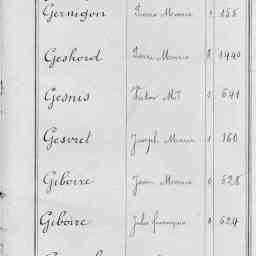 Gernigon Pierre Marie 1 155
Geshord Pierre Marie 8 1440
Gesnis Victor Mie 5 641
Gesvret Joseph Marie 1 160
Geboire Jean Marie 6 528
Geboire Jules François 8 624